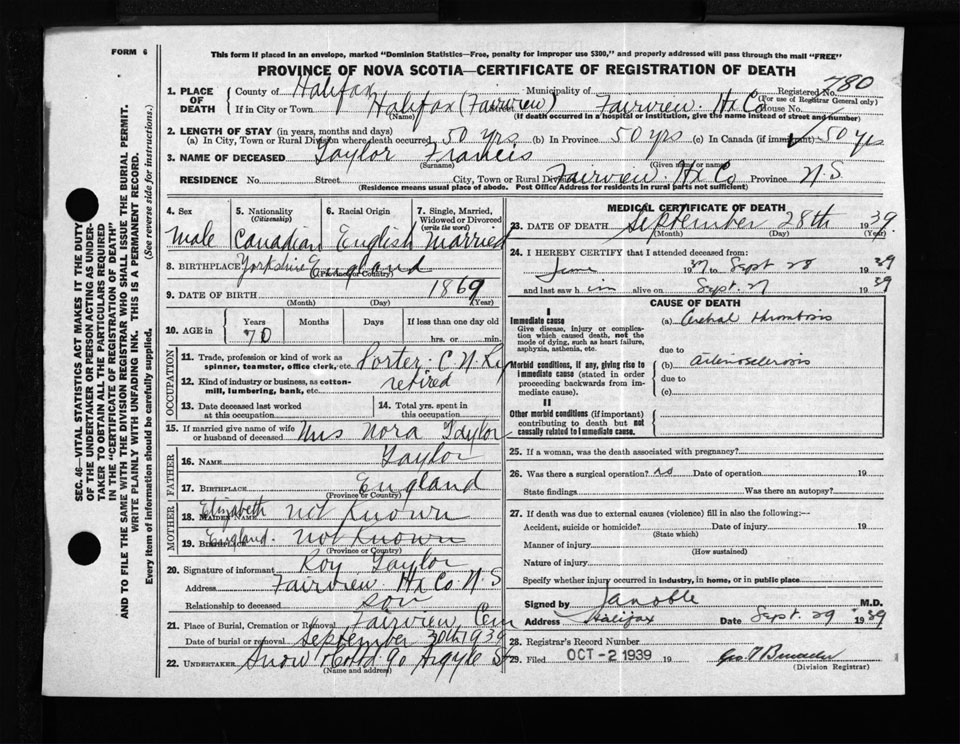 FORM 6
This form if placed in an envelope, marked "Dominion Statistics—Free, penalty for improper use $300," and properly addressed will pass through the mail "FREE"
PROVINCE OF NOVA SCOTIA—CERTIFICATE OF REGISTRATION OF DEATH
780
1. PLACE OF DEATH
County of Halifax Municipality of Registered No.
(For use of Registrar General only)
If in City or Town Halifax (Fairview) Fairview. Hx Co House No.
(Name) (If death occurred in a hospital or institution, give the name instead of street and number)
2. LENGTH OF STAY (in years, months and days)
(a) In City, Town or Rural Division where death occurred 50 yrs (b) In Province 50 yrs (c) In Canada (if immigrant) 50 yrs
3. NAME OF DECEASED Taylor Francis
(Surname) (Given name or name)
RESIDENCE No. Street City, Town or Rural Div. Fairview. Hx Co Province N.S.
(Residence means usual place of abode. Post Office Address for residents in rural parts not sufficient)
4. Sex
Male
5. Nationality (Citizenship)
Canadian
6. Racial Origin
English
7. Single, Married, Widowed or Divorced (write the word)
Married
8. BIRTHPLACE Yorkshire England
(Province or Country)
9. DATE OF BIRTH 1869
(Month) (Day) (Year)
10. AGE in Years Months Days If less than one day old
70 hrs. or min.
OCCUPATION
11. Trade, profession or kind of work as spinner, teamster, office clerk, etc. Porter. C.N.Ry
12. Kind of industry or business, as cotton-mill, lumbering, bank, etc. retired
13. Date deceased last worked at this occupation
14. Total yrs. spent in this occupation
15. If married give name of wife or husband of deceased Mrs Nora Taylor
FATHER
16. NAME Taylor
17. BIRTHPLACE England
(Province or Country)
MOTHER
18. MAIDEN NAME Elizabeth not Known
19. BIRTHPLACE England. not Known
(Province or Country)
20. Signature of informant Roy Taylor
Address Fairview Hx Co. N.S
Relationship to deceased son
21. Place of Burial, Cremation or Removal Fairview Cem
Date of burial or removal September 30th 1939
22. UNDERTAKER Snow & Co Ltd 90 Argyle St
(Name and address)
MEDICAL CERTIFICATE OF DEATH
23. DATE OF DEATH September 28th 1939.
(Month) (Day) (Year)
24. I HEREBY CERTIFY that I attended deceased from:
June 1937 to Sept 28 1939
and last saw him alive on Sept. 27 1939
CAUSE OF DEATH
I
Immediate cause
Give disease, injury or complication which caused death, not the mode of dying, such as heart failure, asphyxia, asthenia, etc.
(a) Cerebral thrombosis
due to
Morbid conditions, if any, giving rise to immediate cause (stated in order proceeding backwards from immediate cause).
(b) Arteriosclerosis
due to
(c)
II
Other morbid conditions (if important) contributing to death but not causally related to immediate cause.
25. If a woman, was the death associated with pregnancy?
26. Was there a surgical operation? no Date of operation 19
State findings Was there an autopsy?
27. If death was due to external causes (violence) fill in also the following:—
Accident, suicide or homicide? Date of injury 19
(State which)
Manner of injury
(How sustained)
Nature of injury
Specify whether injury occurred in industry, in home, or in public place
Signed by J A Noble M.D.
Address Halifax Date Sept. 29 1939
28. Registrar's Record Number
29. Filed OCT - 2 1939 19
(Division Registrar)
AND TO FILE THE SAME WITH THE DIVISION REGISTRAR WHO SHALL ISSUE THE BURIAL PERMIT.
SEC. 46—VITAL STATISTICS ACT MAKES IT THE DUTY OF THE UNDERTAKER OR PERSON ACTING AS UNDERTAKER TO OBTAIN ALL THE PARTICULARS REQUIRED IN THE "CERTIFICATE OF REGISTRATION OF DEATH"
WRITE PLAINLY WITH UNFADING INK. THIS IS A PERMANENT RECORD.
Every item of information should be carefully supplied. (See reverse side for instructions.)